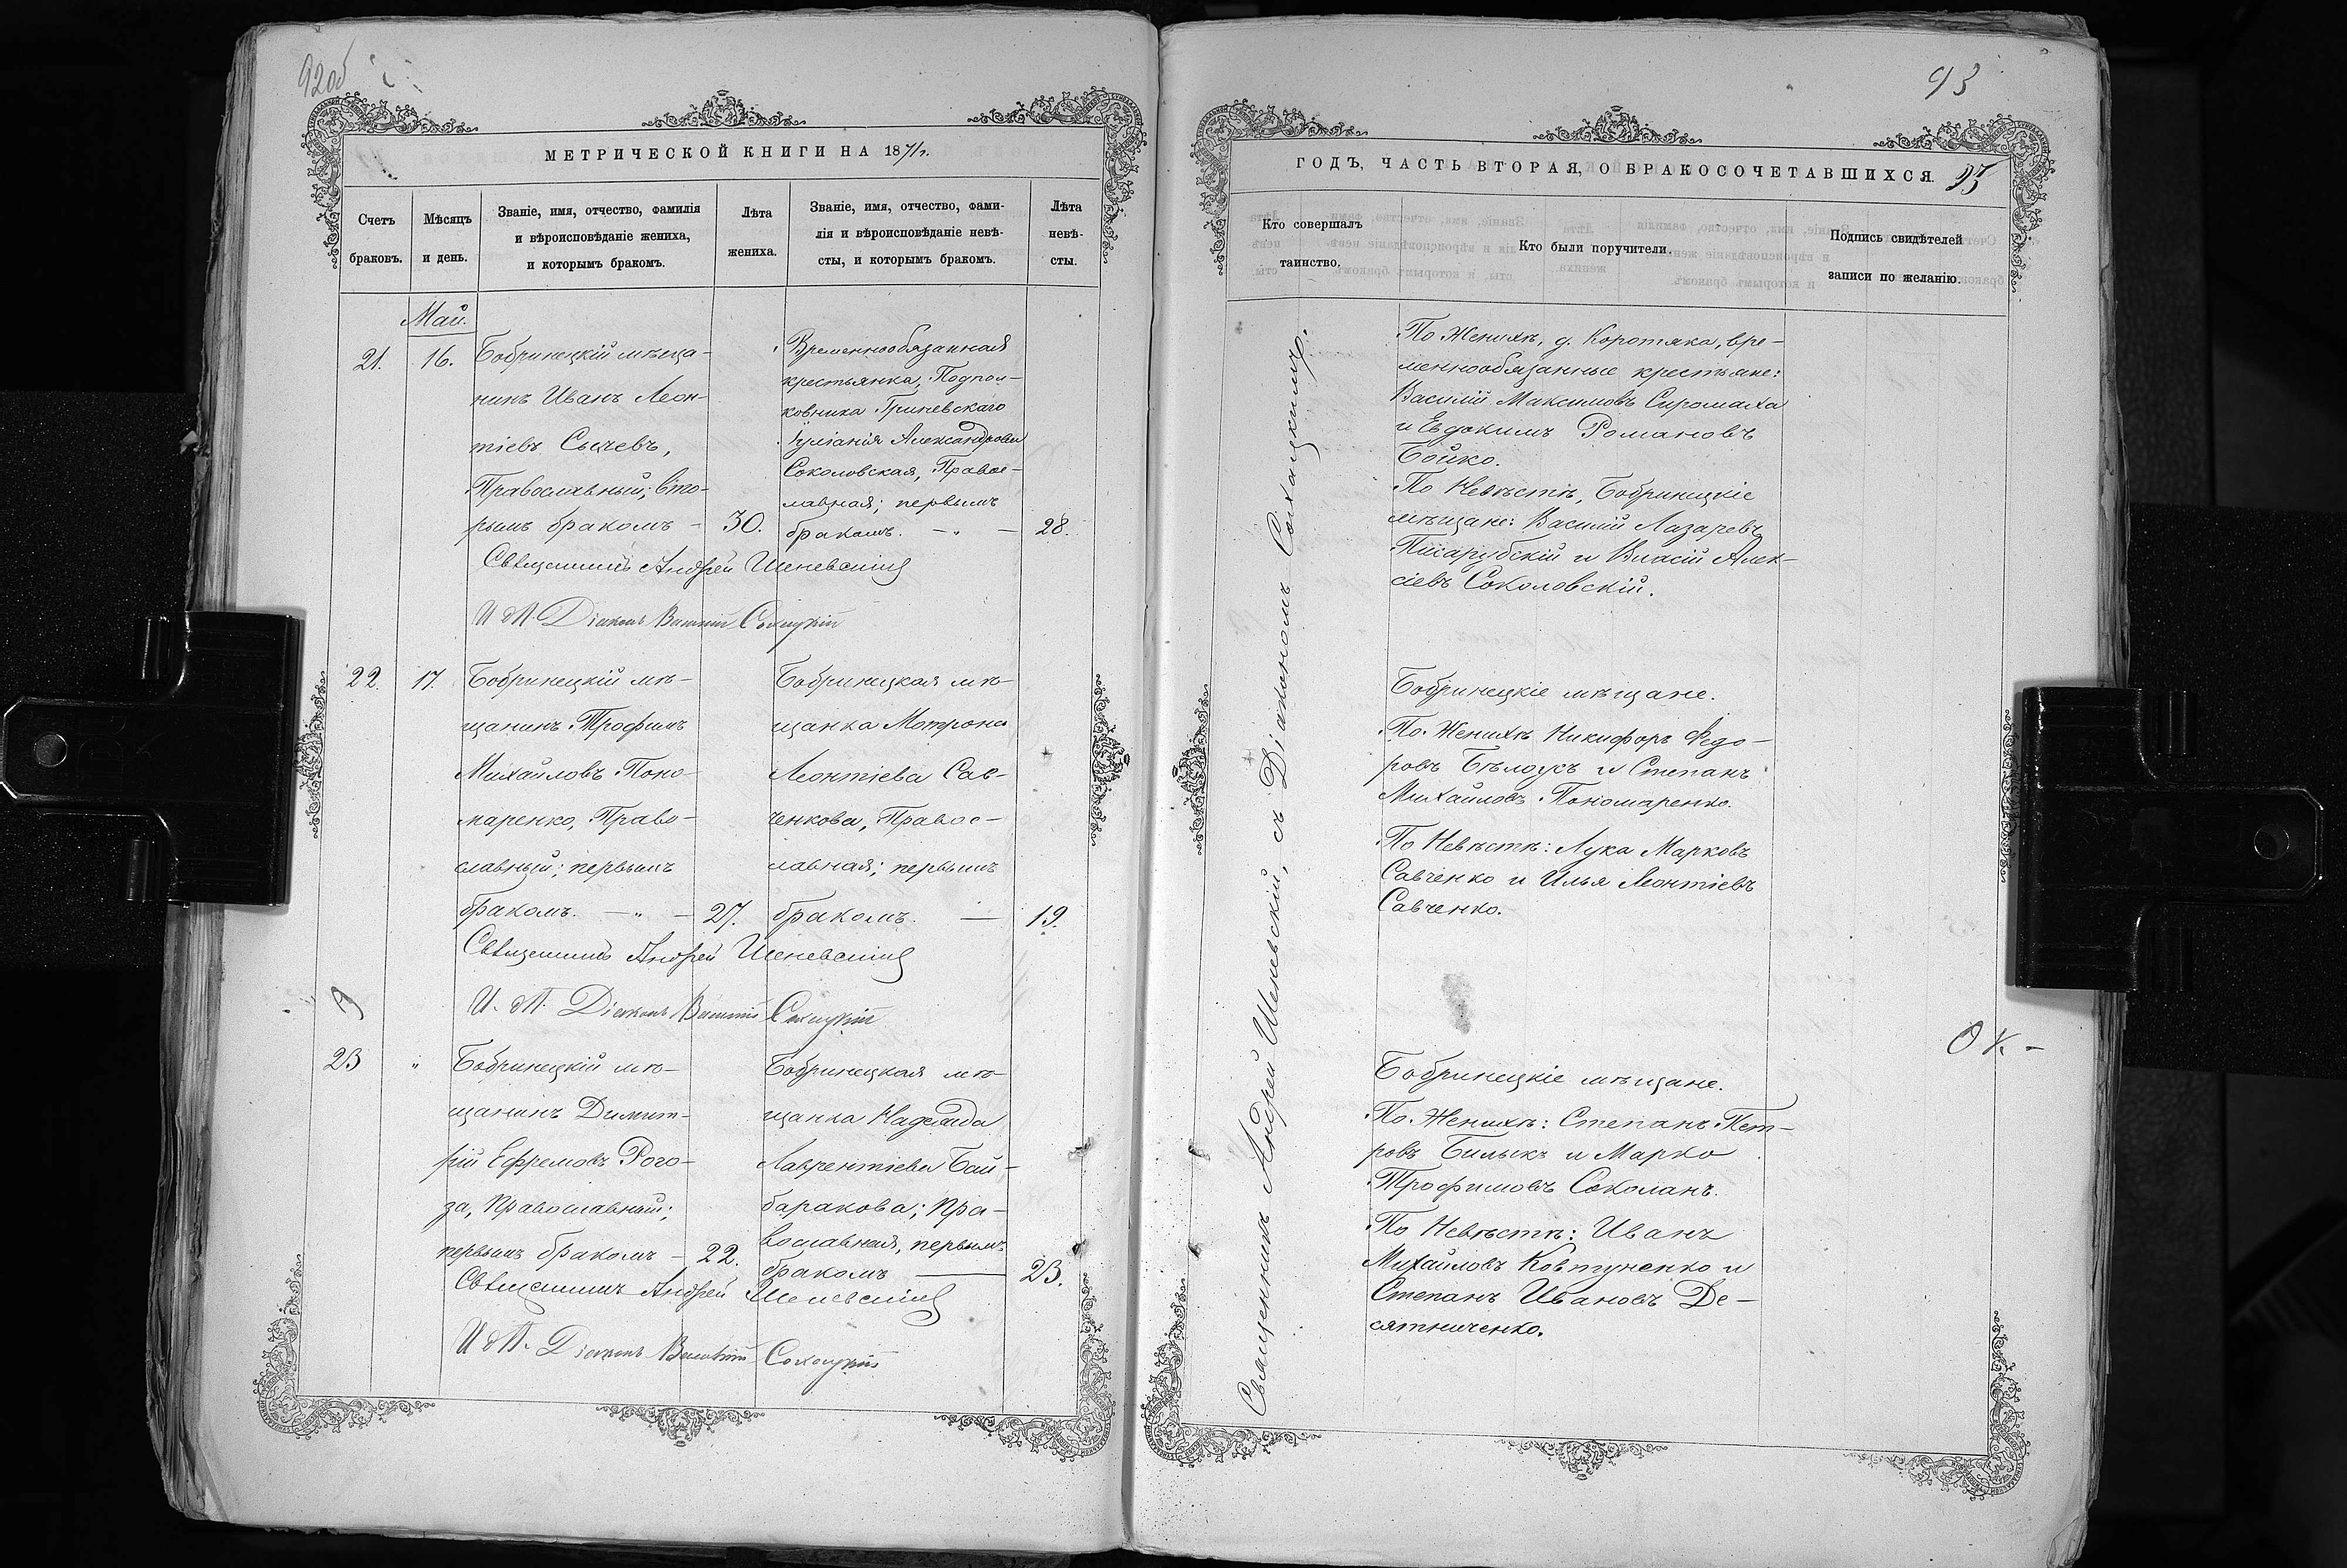 92об
МЕТРИЧЕСКОЙ КНИГИ НА 1871 г.
Счетъ браковъ.
Мѣсяцъ и день.
Званіе, имя, отчество, фамилія
и вѣроисповѣданіе жениха,
и которымъ бракомъ.
Лѣта
жениха.
Званіе, имя, отчество, фами-
лія и вѣроисповѣданіе невѣ-
сты, и которымъ бракомъ.
Лѣта
невѣ-
сты.
Май.
21. 16.
Бобринецкій мѣща-
нинъ Иванъ Леон-
тіевъ Сычевъ,
Православный; вто-
рымъ бракомъ - 30.
Временнообязанная
крестьянка, Подпол-
ковника Гриневскаго
Іуліанія Александрова
Соколовская, Правос-
лавная; первымъ
бракомъ. — „ — 28.
Священникъ Андрей Шеневскій
И. д. П. Діаконъ Сохацкій
22. 17.
Бобринецкій мѣ-
щанинъ Трофимъ
Михайловъ Поно-
маренко, Право-
славный; первымъ
бракомъ. — „ — 27.
Бобринецкая мѣ-
щанка Мотрона
Леонтіева Сав-
ченкова, Правос-
лавная; первымъ
бракомъ. — 19.
Священникъ Андрей Шеневскій
И. д. П. Діаконъ Сохацкій
23 „
Бобринецкій мѣ-
щанинъ Димит-
рій Ефремовъ Рого-
за, Православный;
первымъ бракомъ - 22.
Бобринецкая мѣ-
щанка Надежда
Лаврентіева Бай-
баракова; Пра-
вославная, первымъ
бракомъ — 23.
Священникъ Андрей Шеневскій
И. д. П. Діаконъ Сохацкій
93
ГОДЪ, ЧАСТЬ ВТОРАЯ, О БРАКОСОЧЕТАВШИХСЯ.
Кто совершалъ
таинство.
Кто были поручители.
Подпись свидѣтелей
записи по желанію.
Священникъ Андрей Шеневскій, съ Діакономъ Сохацкимъ.
По Женихѣ, д. Коротяка, вре-
меннообязанные крестьяне:
Василій Максимовъ Сиромаха
и Евдокимъ Романовъ
Бойко.
По Невѣстѣ, Бобринецкіе
мѣщане: Василій Лазаревъ
Писарубскій и Власій Алек-
сіевъ Соколовскій.
Бобринецкіе мѣщане.
По Женихѣ Никифоръ Ѳедо-
ровъ Бѣлоусъ и Степанъ
Михайловъ Пономаренко.
По Невѣстѣ: Лука Марковъ
Савченко и Илья Леонтіевъ
Савченко.
Бобринецкіе мѣщане.
По Женихѣ: Степанъ Пет-
ровъ Билыкъ и Марко
Трофимовъ Соколанъ.
По Невѣстѣ: Иванъ
Михайловъ Ковтуненко и
Степанъ Ивановъ Де-
сятниченко.